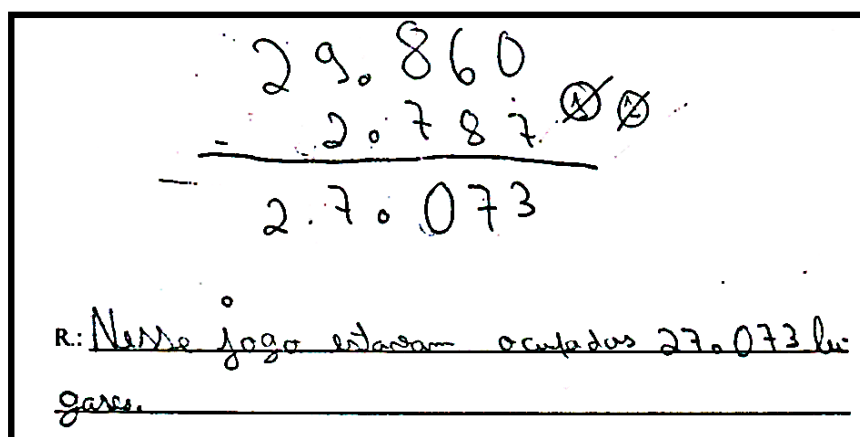 29.860
- 2.787 1 1
2.7.073
R.: Nesse jogo estavam ocupados 27.073 lu-
gares.